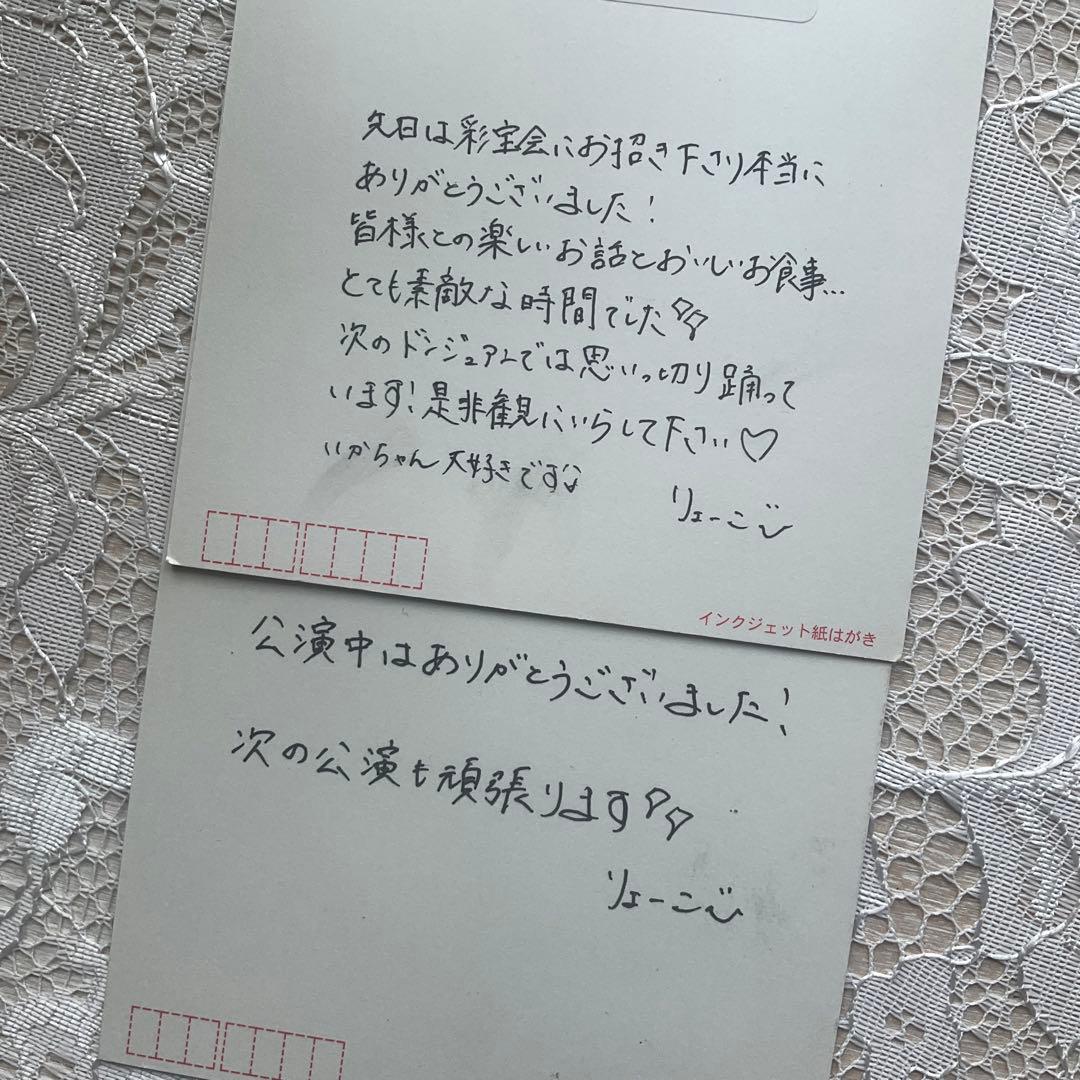 先日は彩宝会にお招き下さり本当に
ありがとうございました!
皆様との楽しいお話とおいしいお食事…
とても素敵な時間でした
次のドンジュアンでは思いっ切り踊って
います!是非観にいらして下さい♡
いかちゃん大好きです
りょーこ
インクジェット紙はがき
公演中はありがとうございました!
次の公演も頑張ります
りょーこ